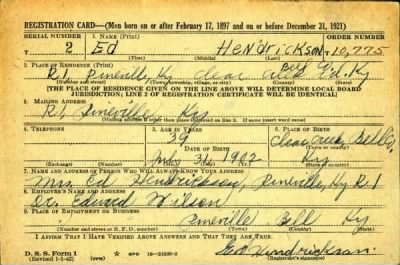 REGISTRATION CARD—(Men born on or after February 17, 1897 and on or before December 31, 1921)
SERIAL NUMBER 1. NAME (Print) ORDER NUMBER
2 Ed Hendrickson 10,775
(First) (Middle) (Last)
2. PLACE OF RESIDENCE (Print)
R1, Pineville, Ky Clear Creek Bell Ky
(Number and street) (Town, township, village, or city) (County) (State)
[THE PLACE OF RESIDENCE GIVEN ON THE LINE ABOVE WILL DETERMINE LOCAL BOARD
JURISDICTION; LINE 2 OF REGISTRATION CERTIFICATE WILL BE IDENTICAL]
3. MAILING ADDRESS
R1, Pineville Ky
[Mailing address if other than place indicated on line 2. If same insert word same]
4. TELEPHONE 5. AGE IN YEARS 6. PLACE OF BIRTH
39 Clear Creek Bell Co,
DATE OF BIRTH (Town or county)
31, 1902 Ky
(Exchange) (Number) (Mo.) (Day) (Yr.) (State or country)
7. NAME AND ADDRESS OF PERSON WHO WILL ALWAYS KNOW YOUR ADDRESS
Mrs Ed Hendrickson, Pineville, Ky R1
8. EMPLOYER'S NAME AND ADDRESS
Dr. Edward Wilson
9. PLACE OF EMPLOYMENT OR BUSINESS
Pineville Bell Ky
(Number and street or R. F. D. number) (Town) (County) (State)
I AFFIRM THAT I HAVE VERIFIED ABOVE ANSWERS AND THAT THEY ARE TRUE.
D. S. S. Form 1 Ed Hendrickson
(Revised 1-1-42) (over) (Registrant's signature)